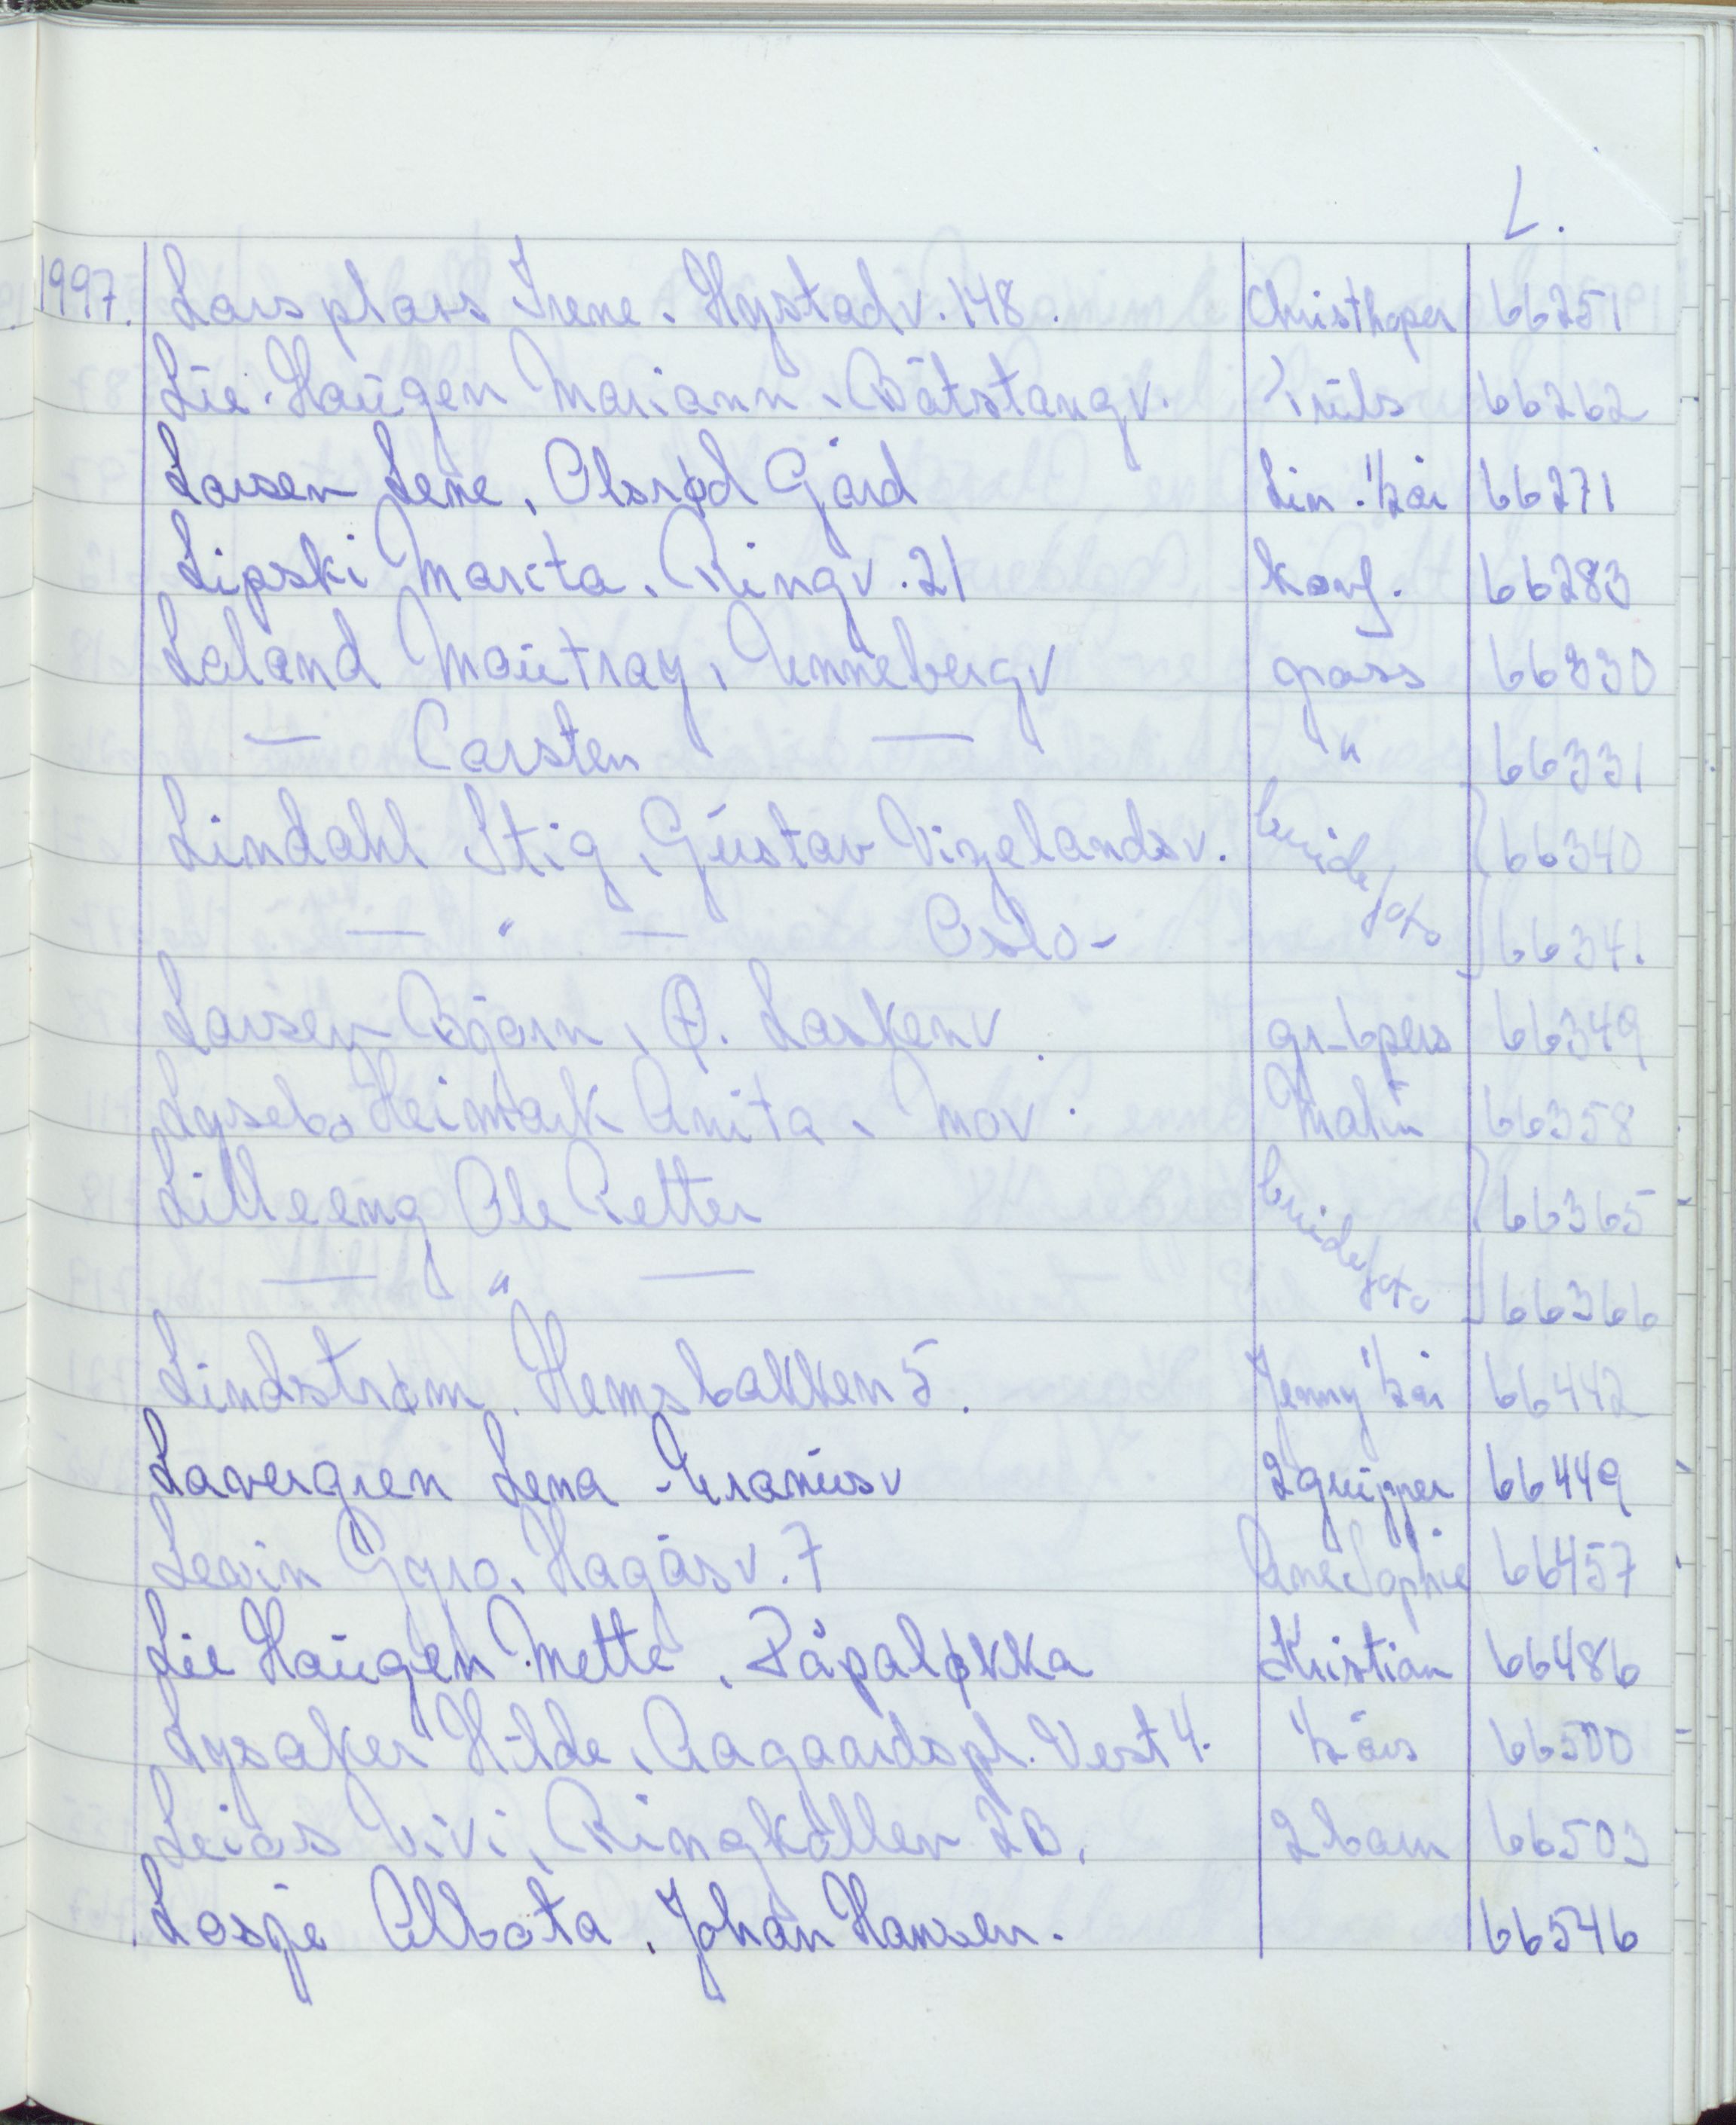 L.
1997. Larsplass Irene. Hystadv. 148. Christhoper 66251
Lie-Haugen Mariann. Båtstangv. Truls 66262
Larsen Lene, Olsrød Gård Lin. 1/2 år 66271
Lipski Marita. Ringv. 21 konf. 66283
Leland Mautray, Unnebergv pass 66330
— Carsten — " 66331
Lindahl Stig, Gustav Vigelandsv. brude 66340
— " — Oslo- foto 66341.
Larsen Bjørn, Ø. Laskenv. gr-6pers 66349
Lysebo Heimtark Anita, Mov. Malin 66358
Lilleeng Ole Petter brude 66365
— " — foto 66366
Lindstrøm. Hemsbakken 5. Jenny 1/2 år 66442
Lavergren Lena - Uranusv 2 grupper 66449
Levin Gyro. Hagåsv. 7 Ane Sophie 66457
Lie Haugen Mette, Påpaløkka Kristian 66486
Lysaker Hilde, Aagaardspl. Vest 4. 1/2 års 66500
Leiås Vivi, Ringkollen 2B. 2 barn 66503
Losje Albota. Johan Hansen. 66546